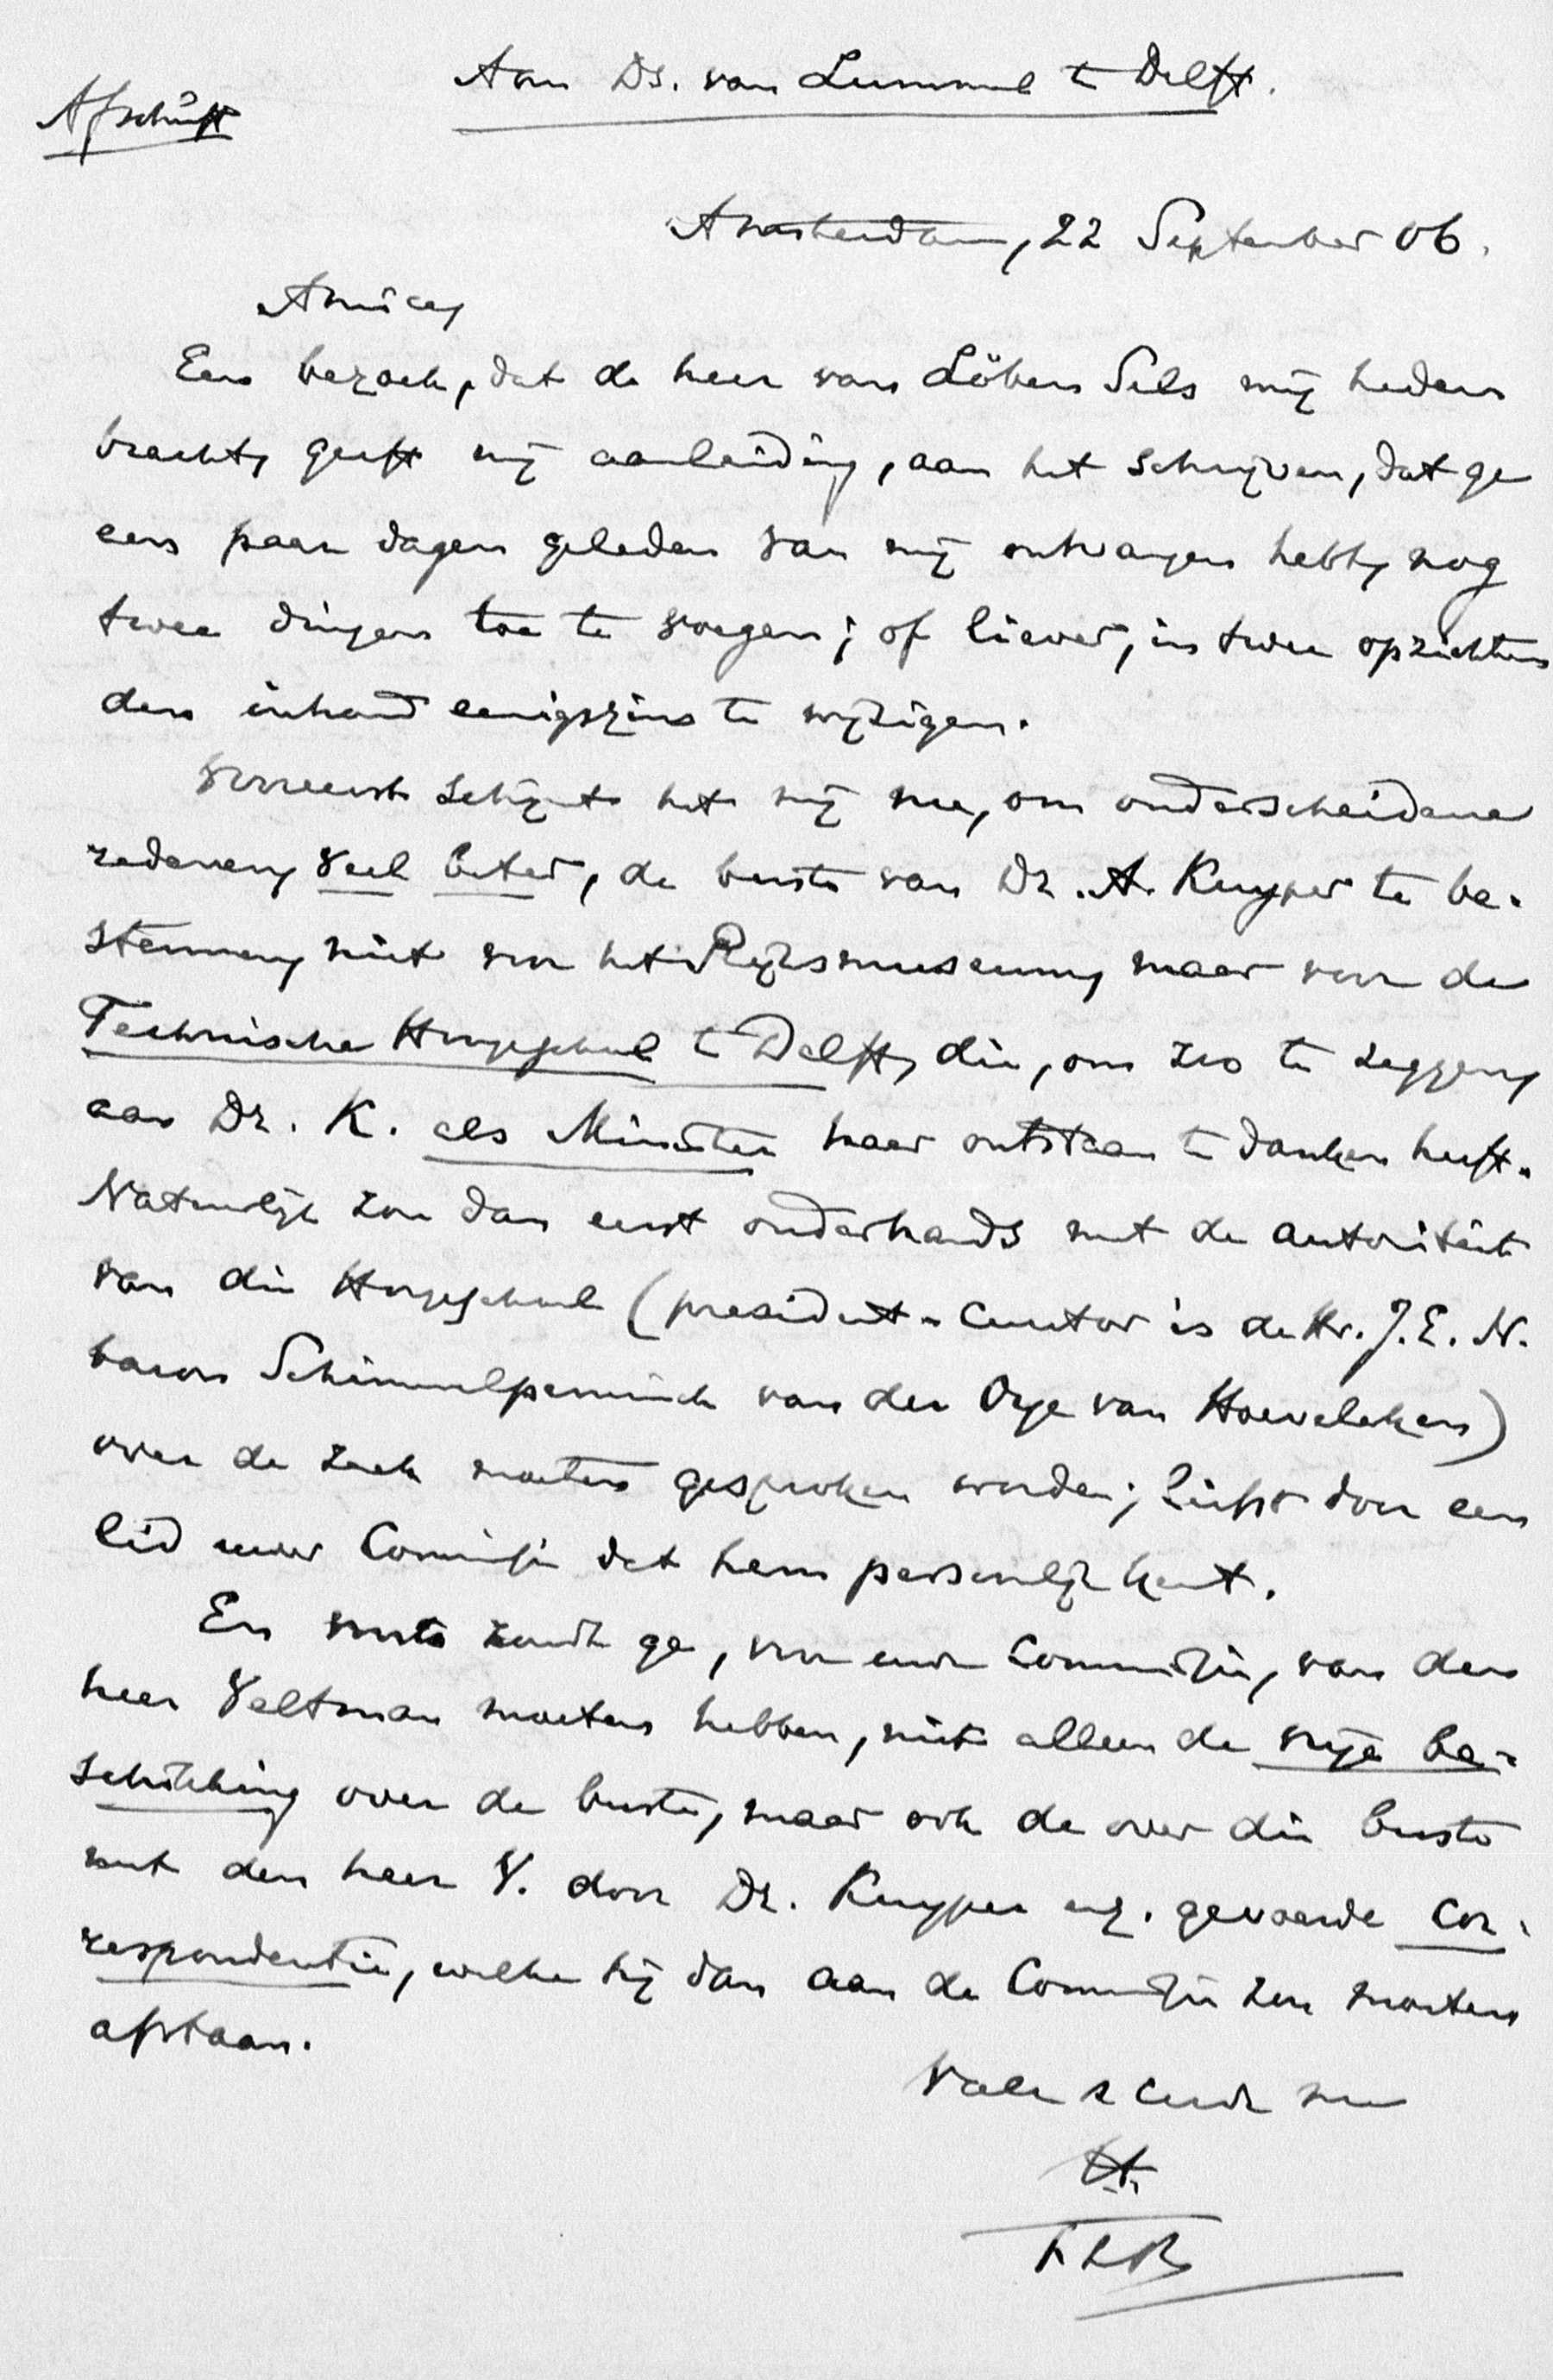 Aan Ds. van Lummel te Delft.
Afschrift
Amsterdam, 22 September 06.
Amice,
Een bezoek, dat de heer van Löben Sels mij heden
bracht, geeft mij aanleiding, aan het schrijven, dat ge
een paar dagen geleden van mij ontvangen hebt, nog
twee dingen toe te voegen; of liever, in twee opzichten
den inhoud eenigszins te wijzigen.
Vooreerst schijnt het mij nu, om onderscheidene
redenen, veel beter, de buste van Dr. A. Kuyper te be-
stemmen, niet voor het Rijksmuseum, maar voor de
Technische Hoogeschool te Delft, die, om zoo te zeggen,
aan Dr. K. als Minister haar ontstaan te danken heeft.
Natuurlijk zou dan eerst onderhands met de autoriteit
van die Hoogeschool (president-curator is de Hr. J. E. N.
baron Schimmelpenninck van der Oye van Hoevelaken)
over de zaak moeten gesproken worden; liefst door een
lid uwer Commissie dat hem persoonlijk kent.
En voorts zoudt ge, voor uwe Commissie, van den
heer Veltman moeten hebben, niet alleen de vrije be-
schikking over de buste, maar ook de over die buste
met den heer V. door Dr. Kuyper enz. gevoerde cor-
respondentie, welke hij dan aan de Commissie zou moeten
afstaan.
Vale
FLR